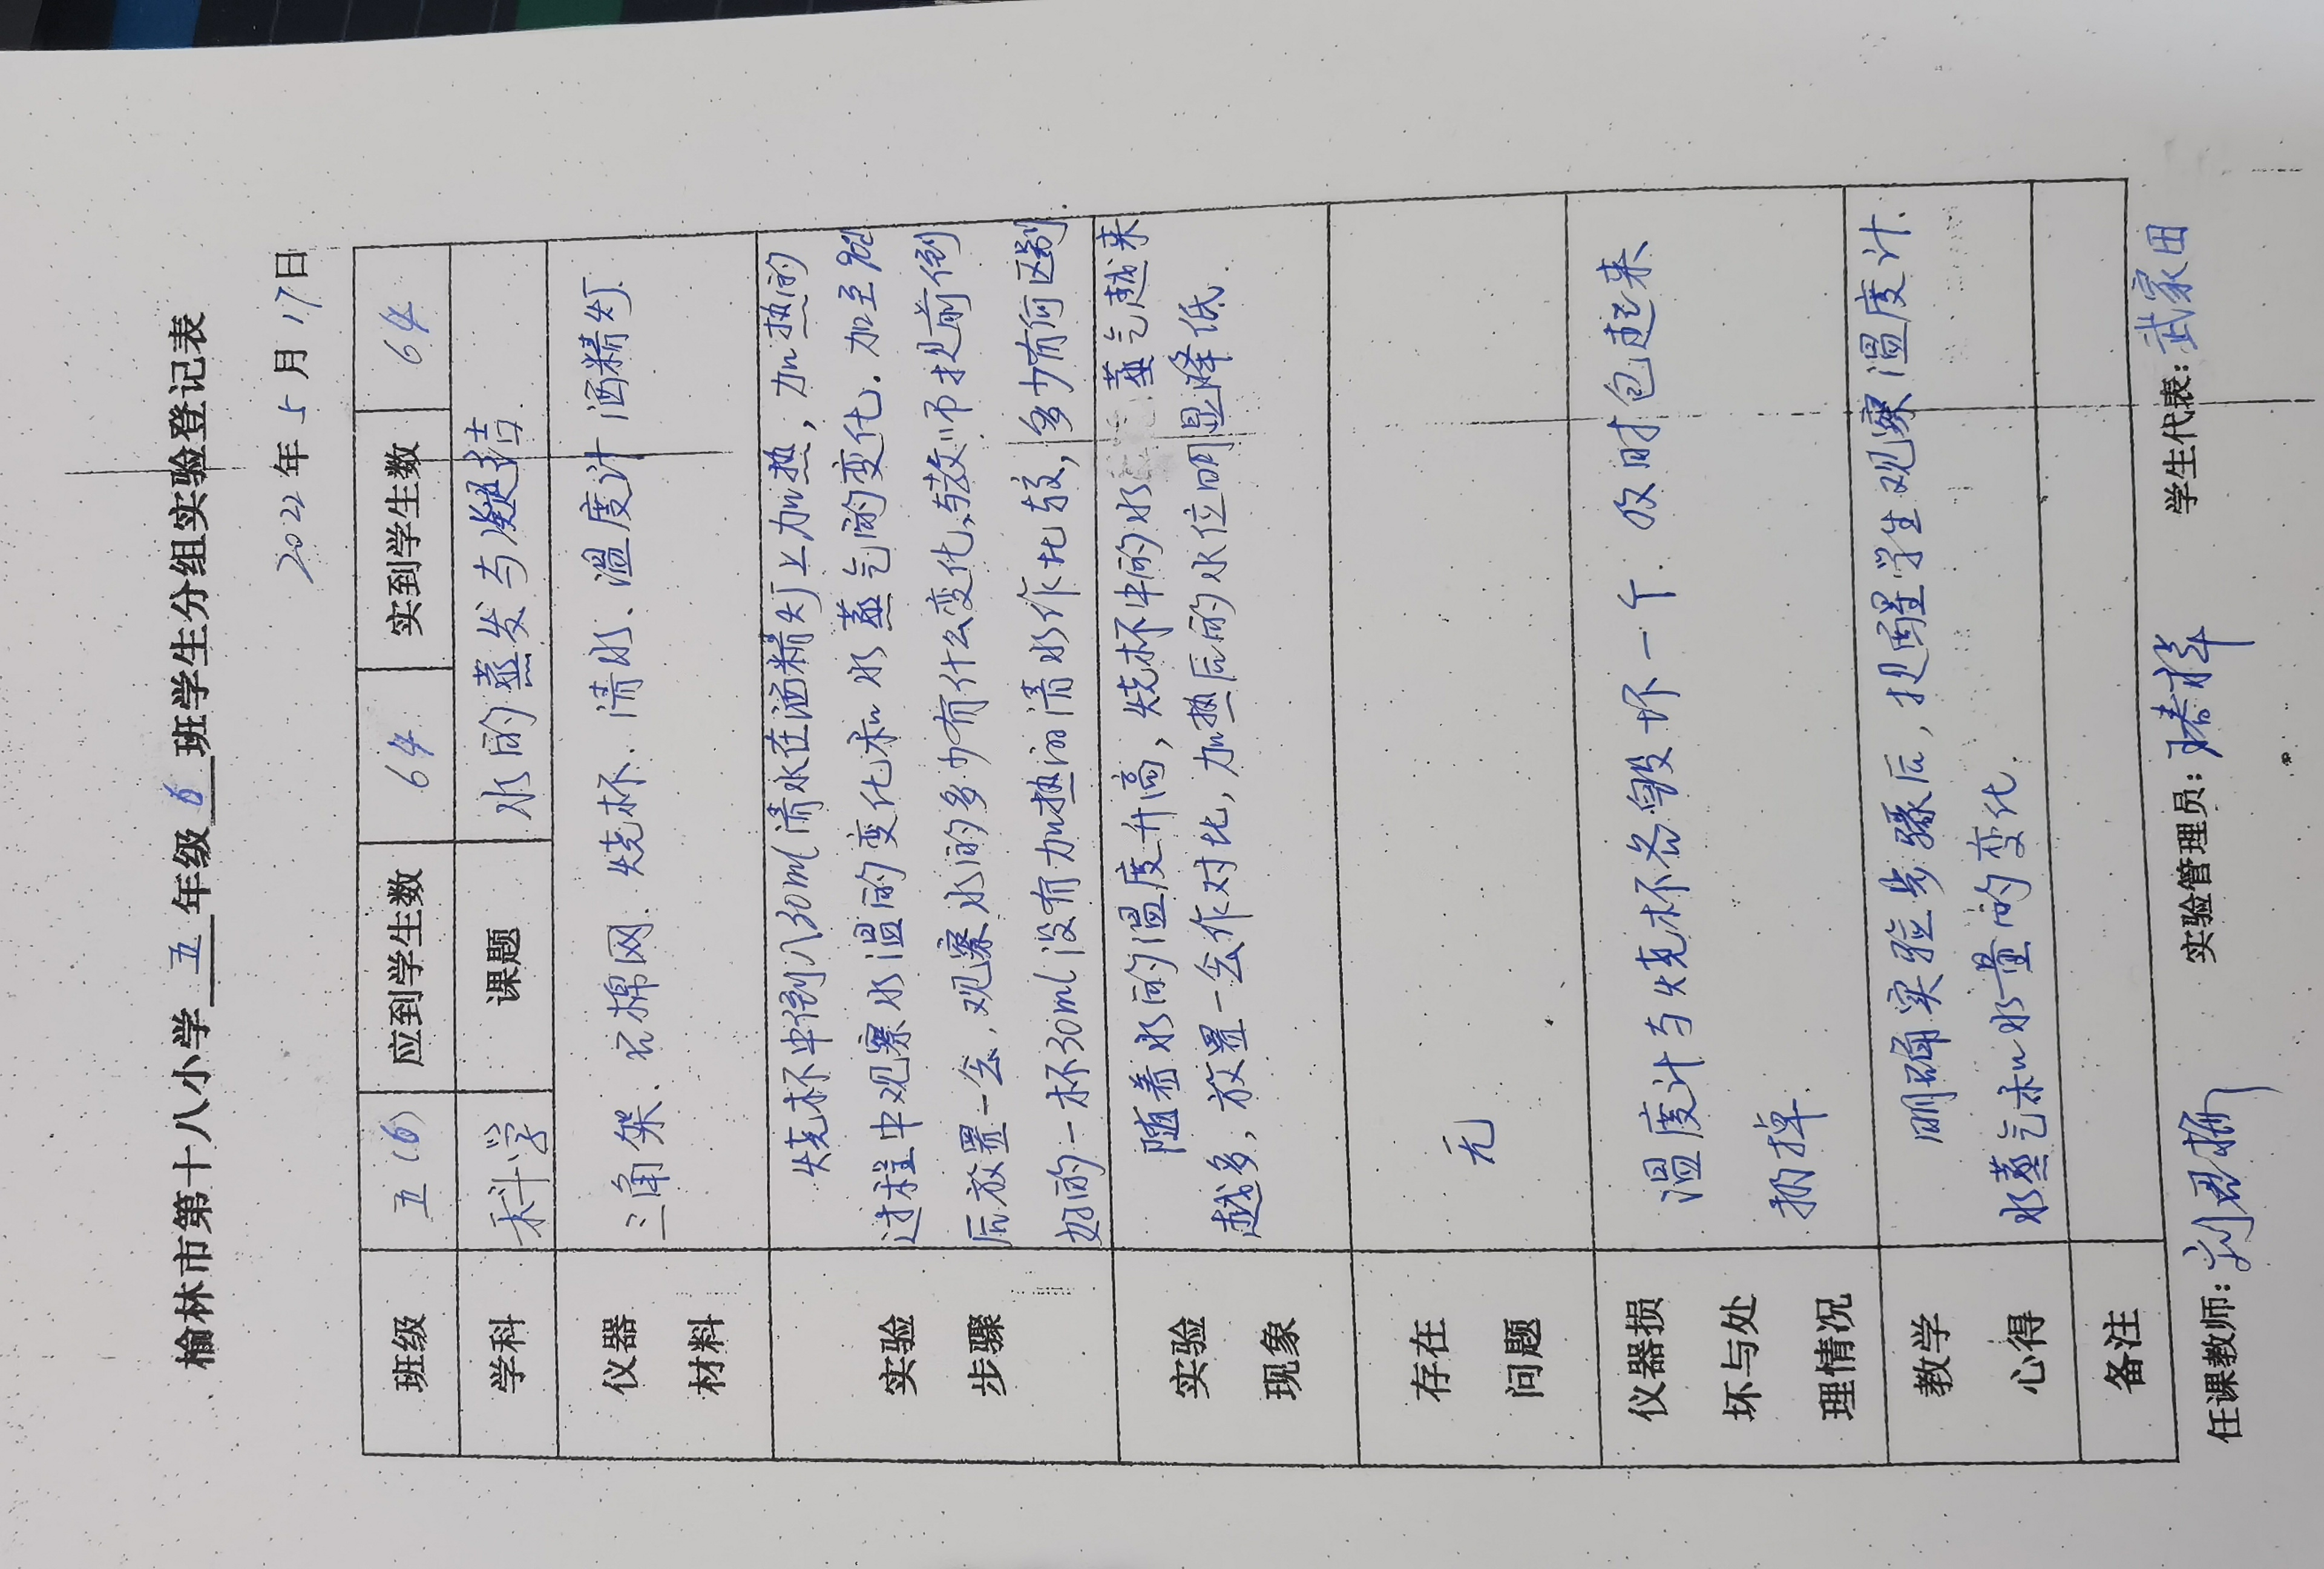 榆林市第十八小学五年级6班学生分组实验登记表
2022年5月17日
班级 五(6) 应到学生数 64 实到学生数 64
学科 科学 课题 水的蒸发与凝结
仪器材料 三角架、石棉网、烧杯、清水、温度计 酒精灯
实验步骤 烧杯中倒入30ml清水在酒精灯上加热,加热的
过程中观察水温的变化和水蒸气的变化.加至
后放置一会,观察水的多少有什么变化,与教师提前倒
好的一杯30ml没有加热的清水作比较,多少有何区别.
实验现象 随着水的温度升高,烧杯中的水蒸气越来
越多,放置一会作对比,加热后的水位明显降低.
存在问题 无
仪器损坏与处理情况 温度计与烧杯各毁坏一个.及时包起来
扔掉.
教学心得 明确实验步骤后,提醒学生观察温度计.
水蒸气和水量的变化.
备注
任课教师:刘 实验管理员: 学生代表:武家田